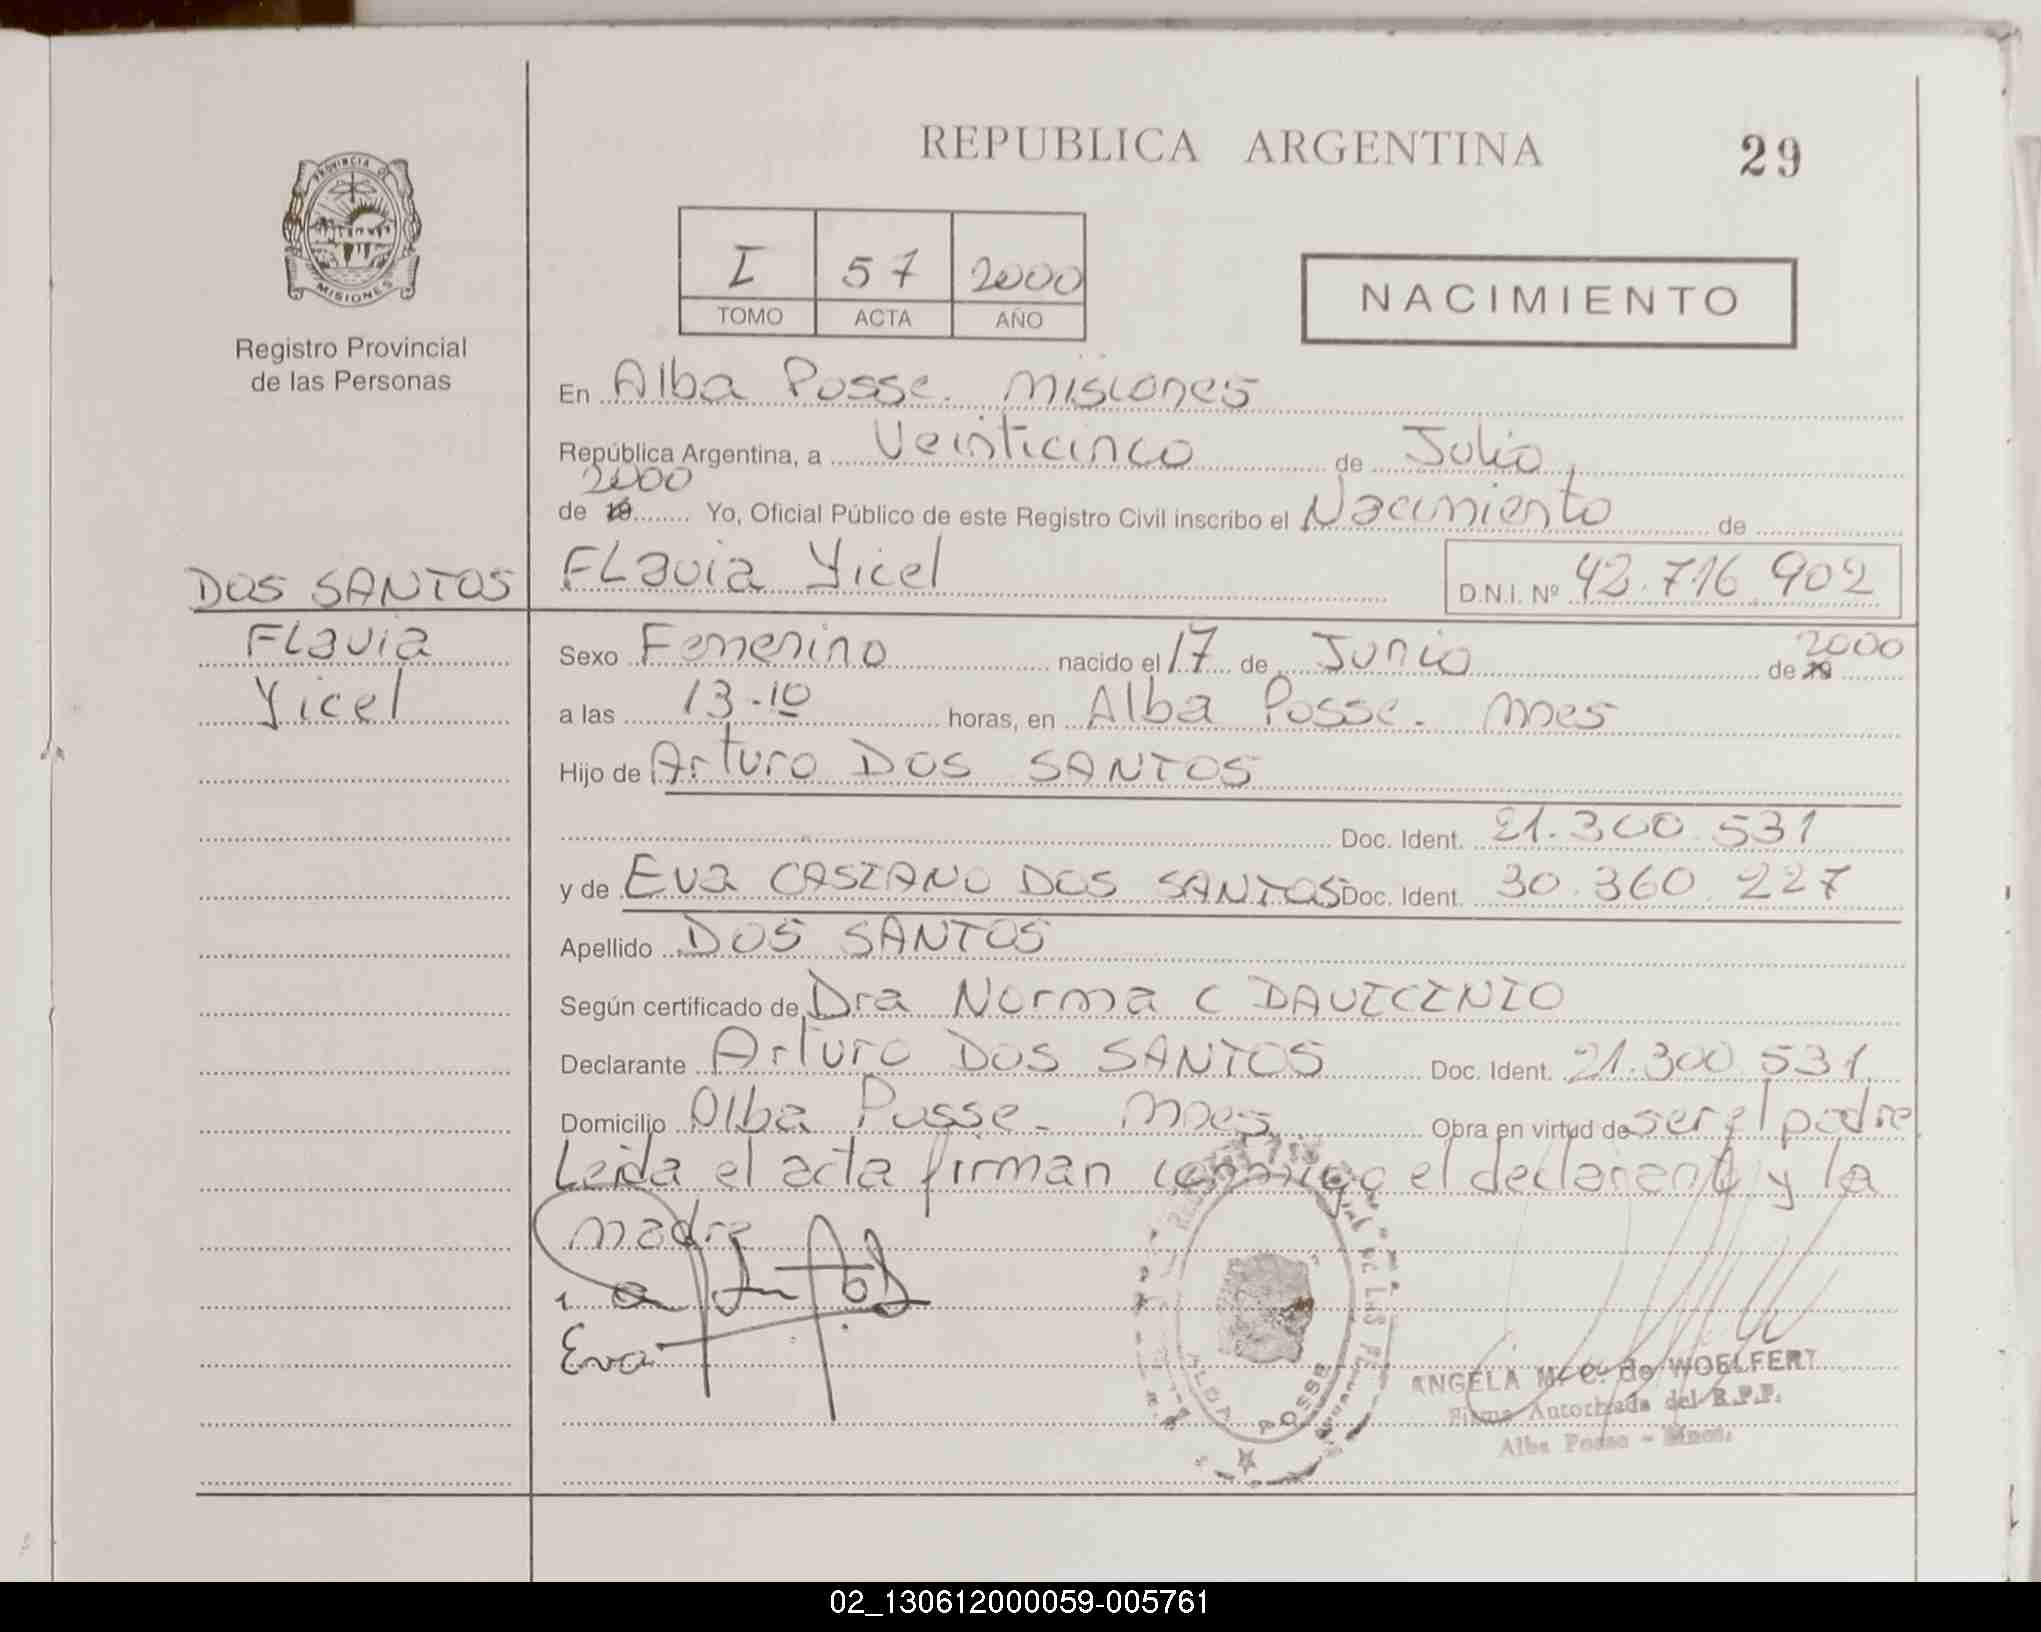 REPUBLICA ARGENTINA
29
PROVINCIA DE
MISIONES
Registro Provincial
de las Personas
I 57 2000
TOMO ACTA AÑO
NACIMIENTO
En Alba Posse. Misiones
República Argentina, a Veinticinco de Julio,
2000
de 19 Yo, Oficial Público de este Registro Civil inscribo el Nacimiento de
DOS SANTOS
Flavia
Yicel
FLavia Yicel D.N.I. Nº 42.716.902
Sexo Femenino nacido el 17 de Junio de 19 2000
a las 13-10 horas, en Alba Posse. Mnes
Hijo de Arturo DOS SANTOS
Doc. Ident. 21.300.531
y de Eva CASIANO DOS SANTOS Doc. Ident. 30.360.227
Apellido DOS SANTOS
Según certificado de Dra Norma C DAVICINIO
Declarante Arturo DOS SANTOS Doc. Ident. 21.300.531
Domicilio Alba Posse - Mnes Obra en virtud de ser el padre
Leida el acta firman conmigo el declarante y la
madre
Eva
ALBA POSSE
ANGELA M. C. de WOELFERT
Firma Autorizada del R.P.P.
Alba Posse - Mnes.
02_130612000059-005761